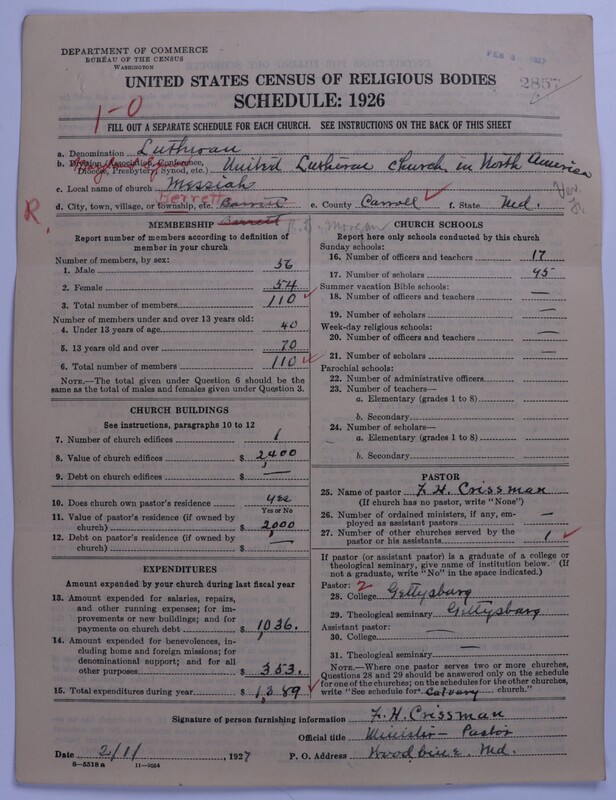 DEPARTMENT OF COMMERCE
BUREAU OF THE CENSUS
WASHINGTON
2857
UNITED STATES CENSUS OF RELIGIOUS BODIES
SCHEDULE: 1926
1-0
FILL OUT A SEPARATE SCHEDULE FOR EACH CHURCH. SEE INSTRUCTIONS ON THE BACK OF THIS SHEET
a. Denomination Lutheran
b. Division (Association, Conference, Diocese, Presbytery, Synod, etc.) United Lutheran Church in North America
c. Local name of church Messiah
Berrett
R.
d. City, town, village, or township, etc. Barrett e. County Carroll f. State Md.
MEMBERSHIP Berrett
Report number of members according to definition of member in your church
Number of members, by sex:
1. Male 56
2. Female 54
3. Total number of members 110
Number of members under and over 13 years old:
4. Under 13 years of age 40
5. 13 years old and over 70
6. Total number of members 110
NOTE.—The total given under Question 6 should be the same as the total of males and females given under Question 3.
CHURCH BUILDINGS
See instructions, paragraphs 10 to 12
7. Number of church edifices 1
8. Value of church edifices $ 2,400
9. Debt on church edifices $ —
10. Does church own pastor's residence yes
Yes or No
11. Value of pastor's residence (if owned by church) $ 2,000
12. Debt on pastor's residence (if owned by church) $ —
EXPENDITURES
Amount expended by your church during last fiscal year
13. Amount expended for salaries, repairs, and other running expenses; for improvements or new buildings; and for payments on church debt $ 1,036.
14. Amount expended for benevolences, including home and foreign missions; for denominational support; and for all other purposes $ 353.
15. Total expenditures during year $ 1,389
CHURCH SCHOOLS
Report here only schools conducted by this church
Sunday schools:
16. Number of officers and teachers 17
17. Number of scholars 95
Summer vacation Bible schools:
18. Number of officers and teachers —
19. Number of scholars —
Week-day religious schools:
20. Number of officers and teachers —
21. Number of scholars —
Parochial schools:
22. Number of administrative officers
23. Number of teachers—
a. Elementary (grades 1 to 8)
b. Secondary
24. Number of scholars—
a. Elementary (grades 1 to 8)
b. Secondary
PASTOR
25. Name of pastor F. H. Crissman
(If church has no pastor, write "None")
26. Number of ordained ministers, if any, employed as assistant pastors —
27. Number of other churches served by the pastor or his assistants 1
If pastor (or assistant pastor) is a graduate of a college or theological seminary, give name of institution below. (If not a graduate, write "No" in the space indicated.)
Pastor: 2
28. College Gettysburg
29. Theological seminary Gettysburg
Assistant pastor:
30. College —
31. Theological seminary —
NOTE.—Where one pastor serves two or more churches, Questions 28 and 29 should be answered only on the schedule for one of the churches; on the schedules for the other churches, write "See schedule for Calvary church."
Signature of person furnishing information F. H. Crissman
Official title Minister - Pastor
Date 2/11, 1927 P. O. Address Woodbine, Md.
8—5518 a 11—9264